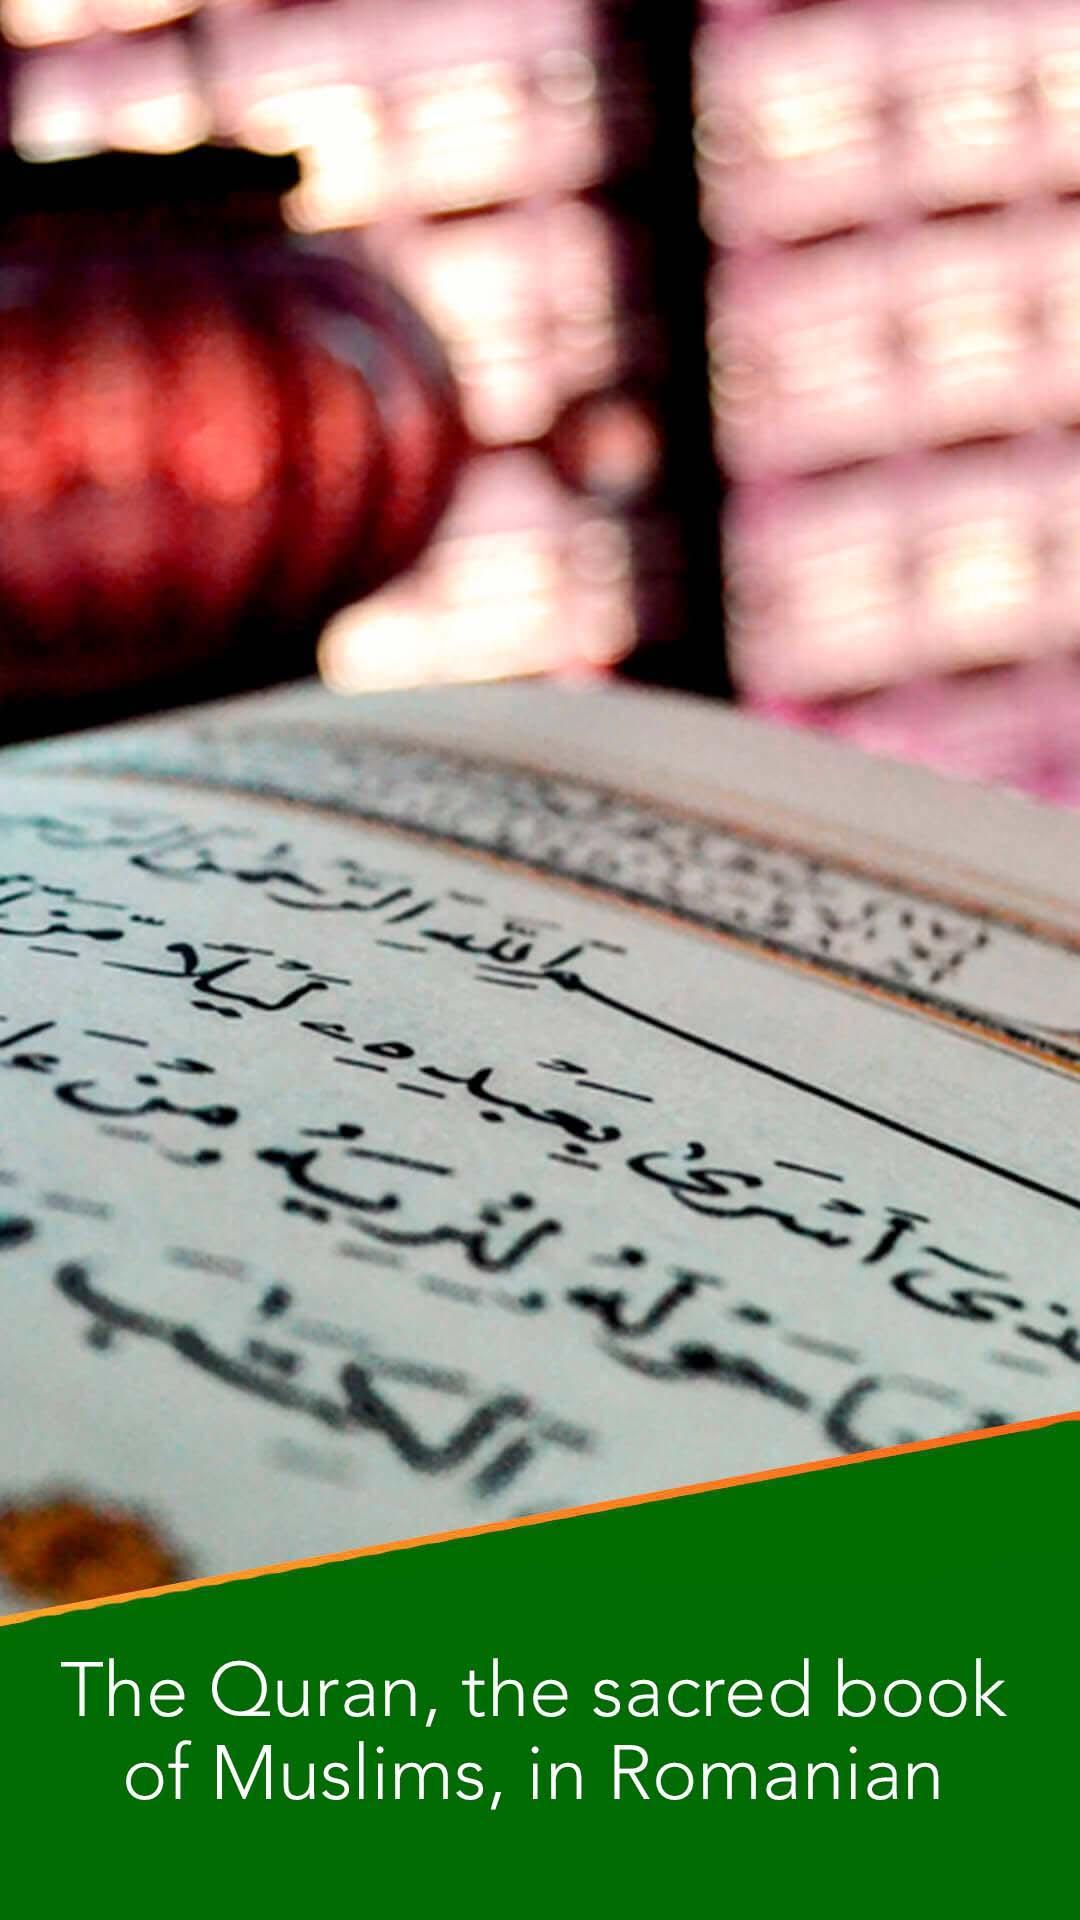 بِسْمِ ٱللَّهِ ٱلرَّحْمَٰنِ
أَسْرَىٰ بِعَبْدِهِۦ لَيْلًا مِّنَ
حَوْلَهُۥ لِنُرِيَهُۥ مِنْ
ٱلْكِتَٰبَ
The Quran, the sacred book
of Muslims, in Romanian